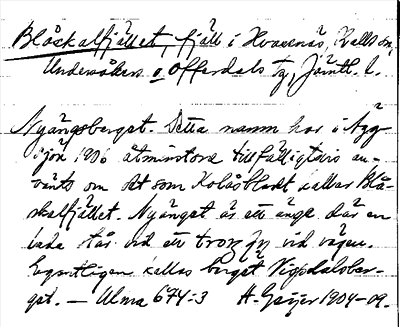 Blåskalfjället, fjäll i Hvaxenäs, Kalls sn,
Undersåkers o Offerdals tg, Jämtl. l.
Nyängsberget. Detta namn har i Ägg
sjön 1906 åtminstone tillfälligtvis an-
vänts om det som Kolåsbladet kallar Blå-
skalfjället. Nyänget är ett änge där en
lada står vid ett vid vägen.
Egentligen kallas berget Vigdalsber-
get. — Ulma 674:3 H. Geijer 1904-09.